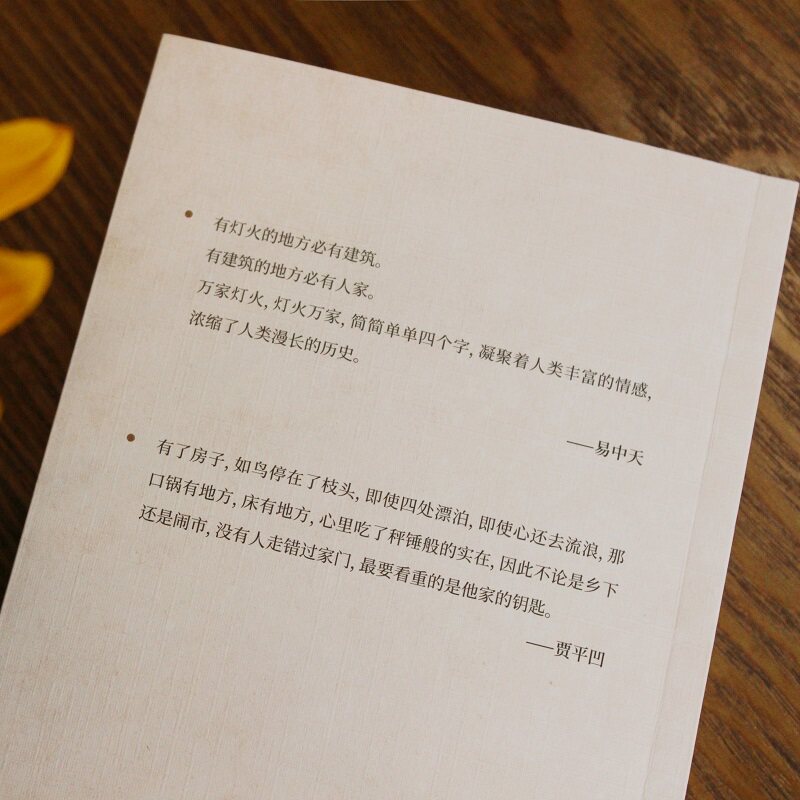 有灯火的地方必有建筑。
有建筑的地方必有人家。
万家灯火，灯火万家，简简单单四个字，凝聚着人类丰富的情感，
浓缩了人类漫长的历史。
——易中天
有了房子，如鸟停在了枝头，即使四处漂泊，即使心还去流浪，那
口锅有地方，床有地方，心里吃了秤锤般的实在，因此不论是乡下
还是闹市，没有人走错过家门，最要看重的是他家的钥匙。
——贾平凹